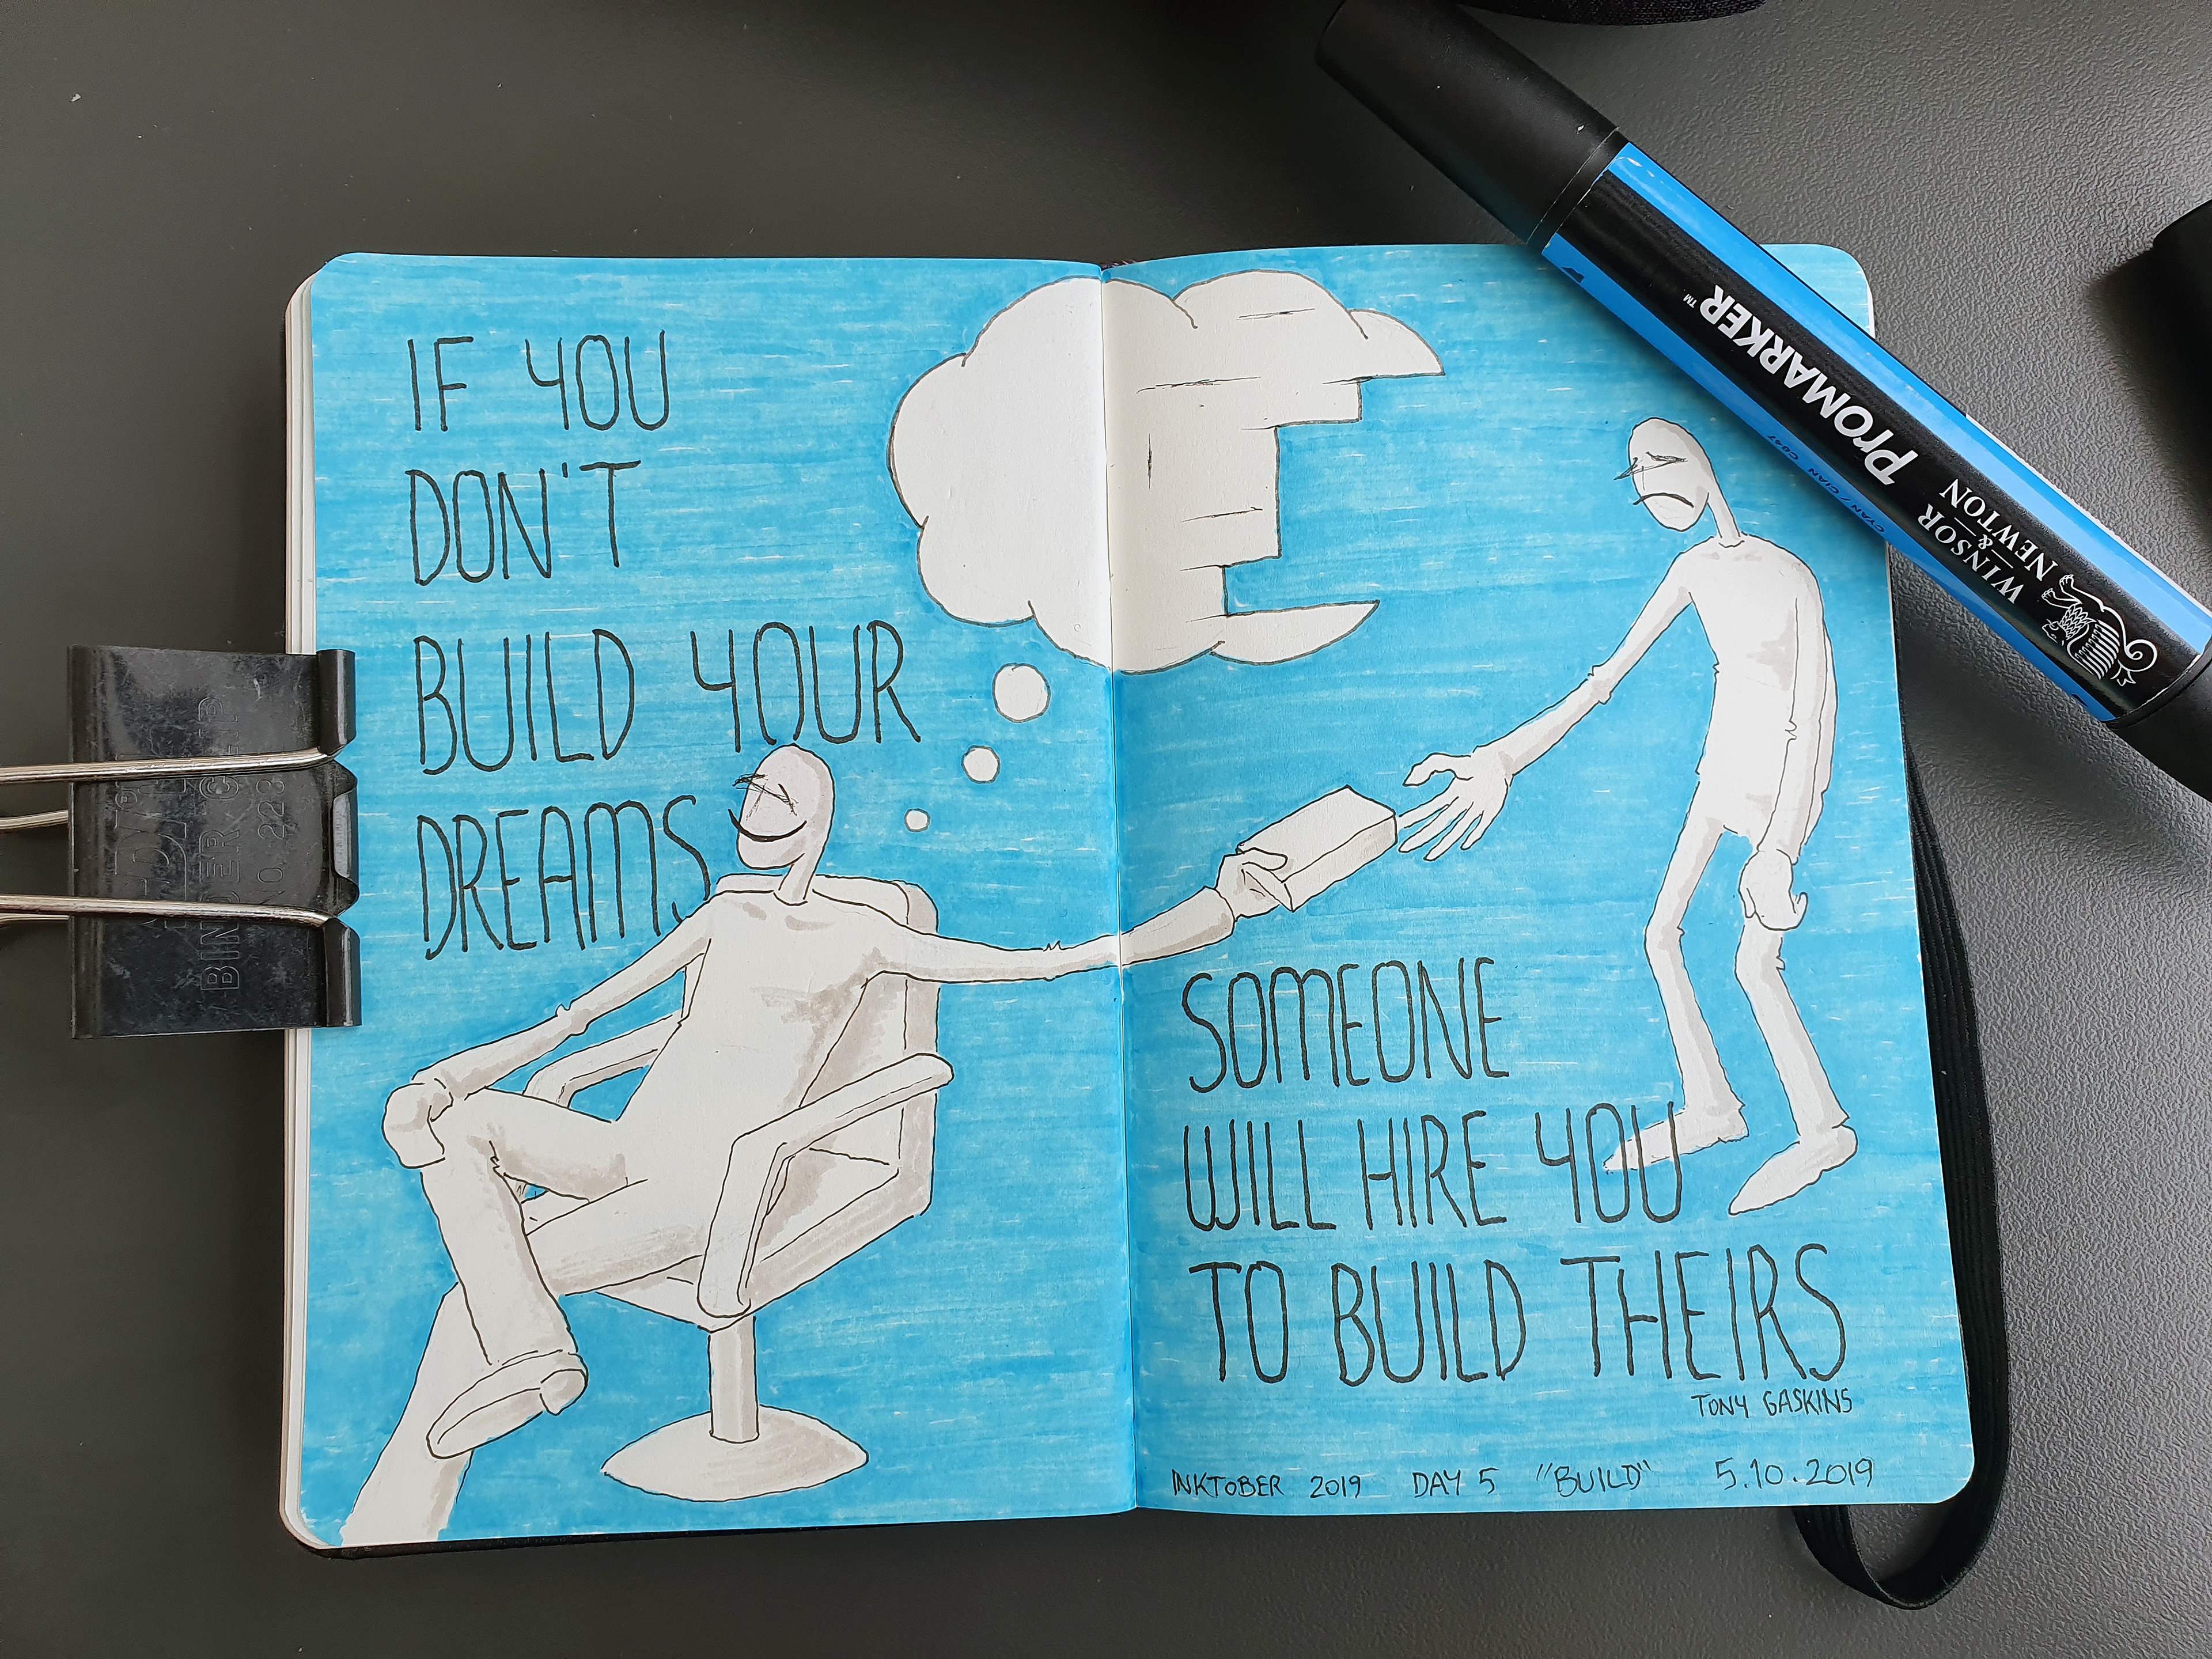 IF YOU
DON'T
BUILD YOUR
DREAMS
SOMEONE
WILL HIRE YOU
TO BUILD THEIRS
TONY GASKINS
INKTOBER 2019 DAY 5 "BUILD" 5.10.2019
PROMARKER™
WINSOR
& NEWTON
CYAN / CIAN C847
BINDER CLIP